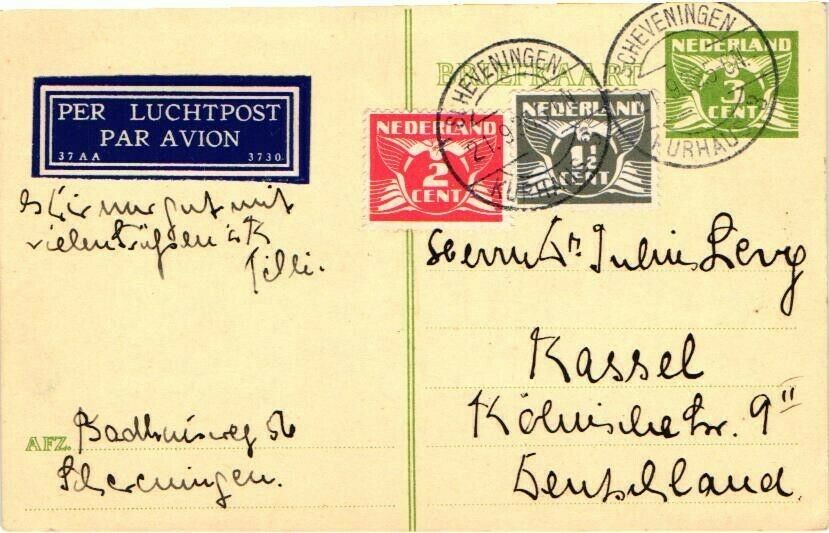 SCHEVENINGEN
KURHAUS
SCHEVENINGEN
KURHAUS
BRIEFKAART
NEDERLAND
3
CENT
PER LUCHTPOST
PAR AVION
37 AA 3730
NEDERLAND
2
CENT
NEDERLAND
1½
CENT
nur gut mit
vielen Grüßen
Tilli.
Herrn Dr. Julius Levy
Kassel
Kölnischestr. 9"
Deutschland
AFZ. Badhuisweg 56
Scheveningen.